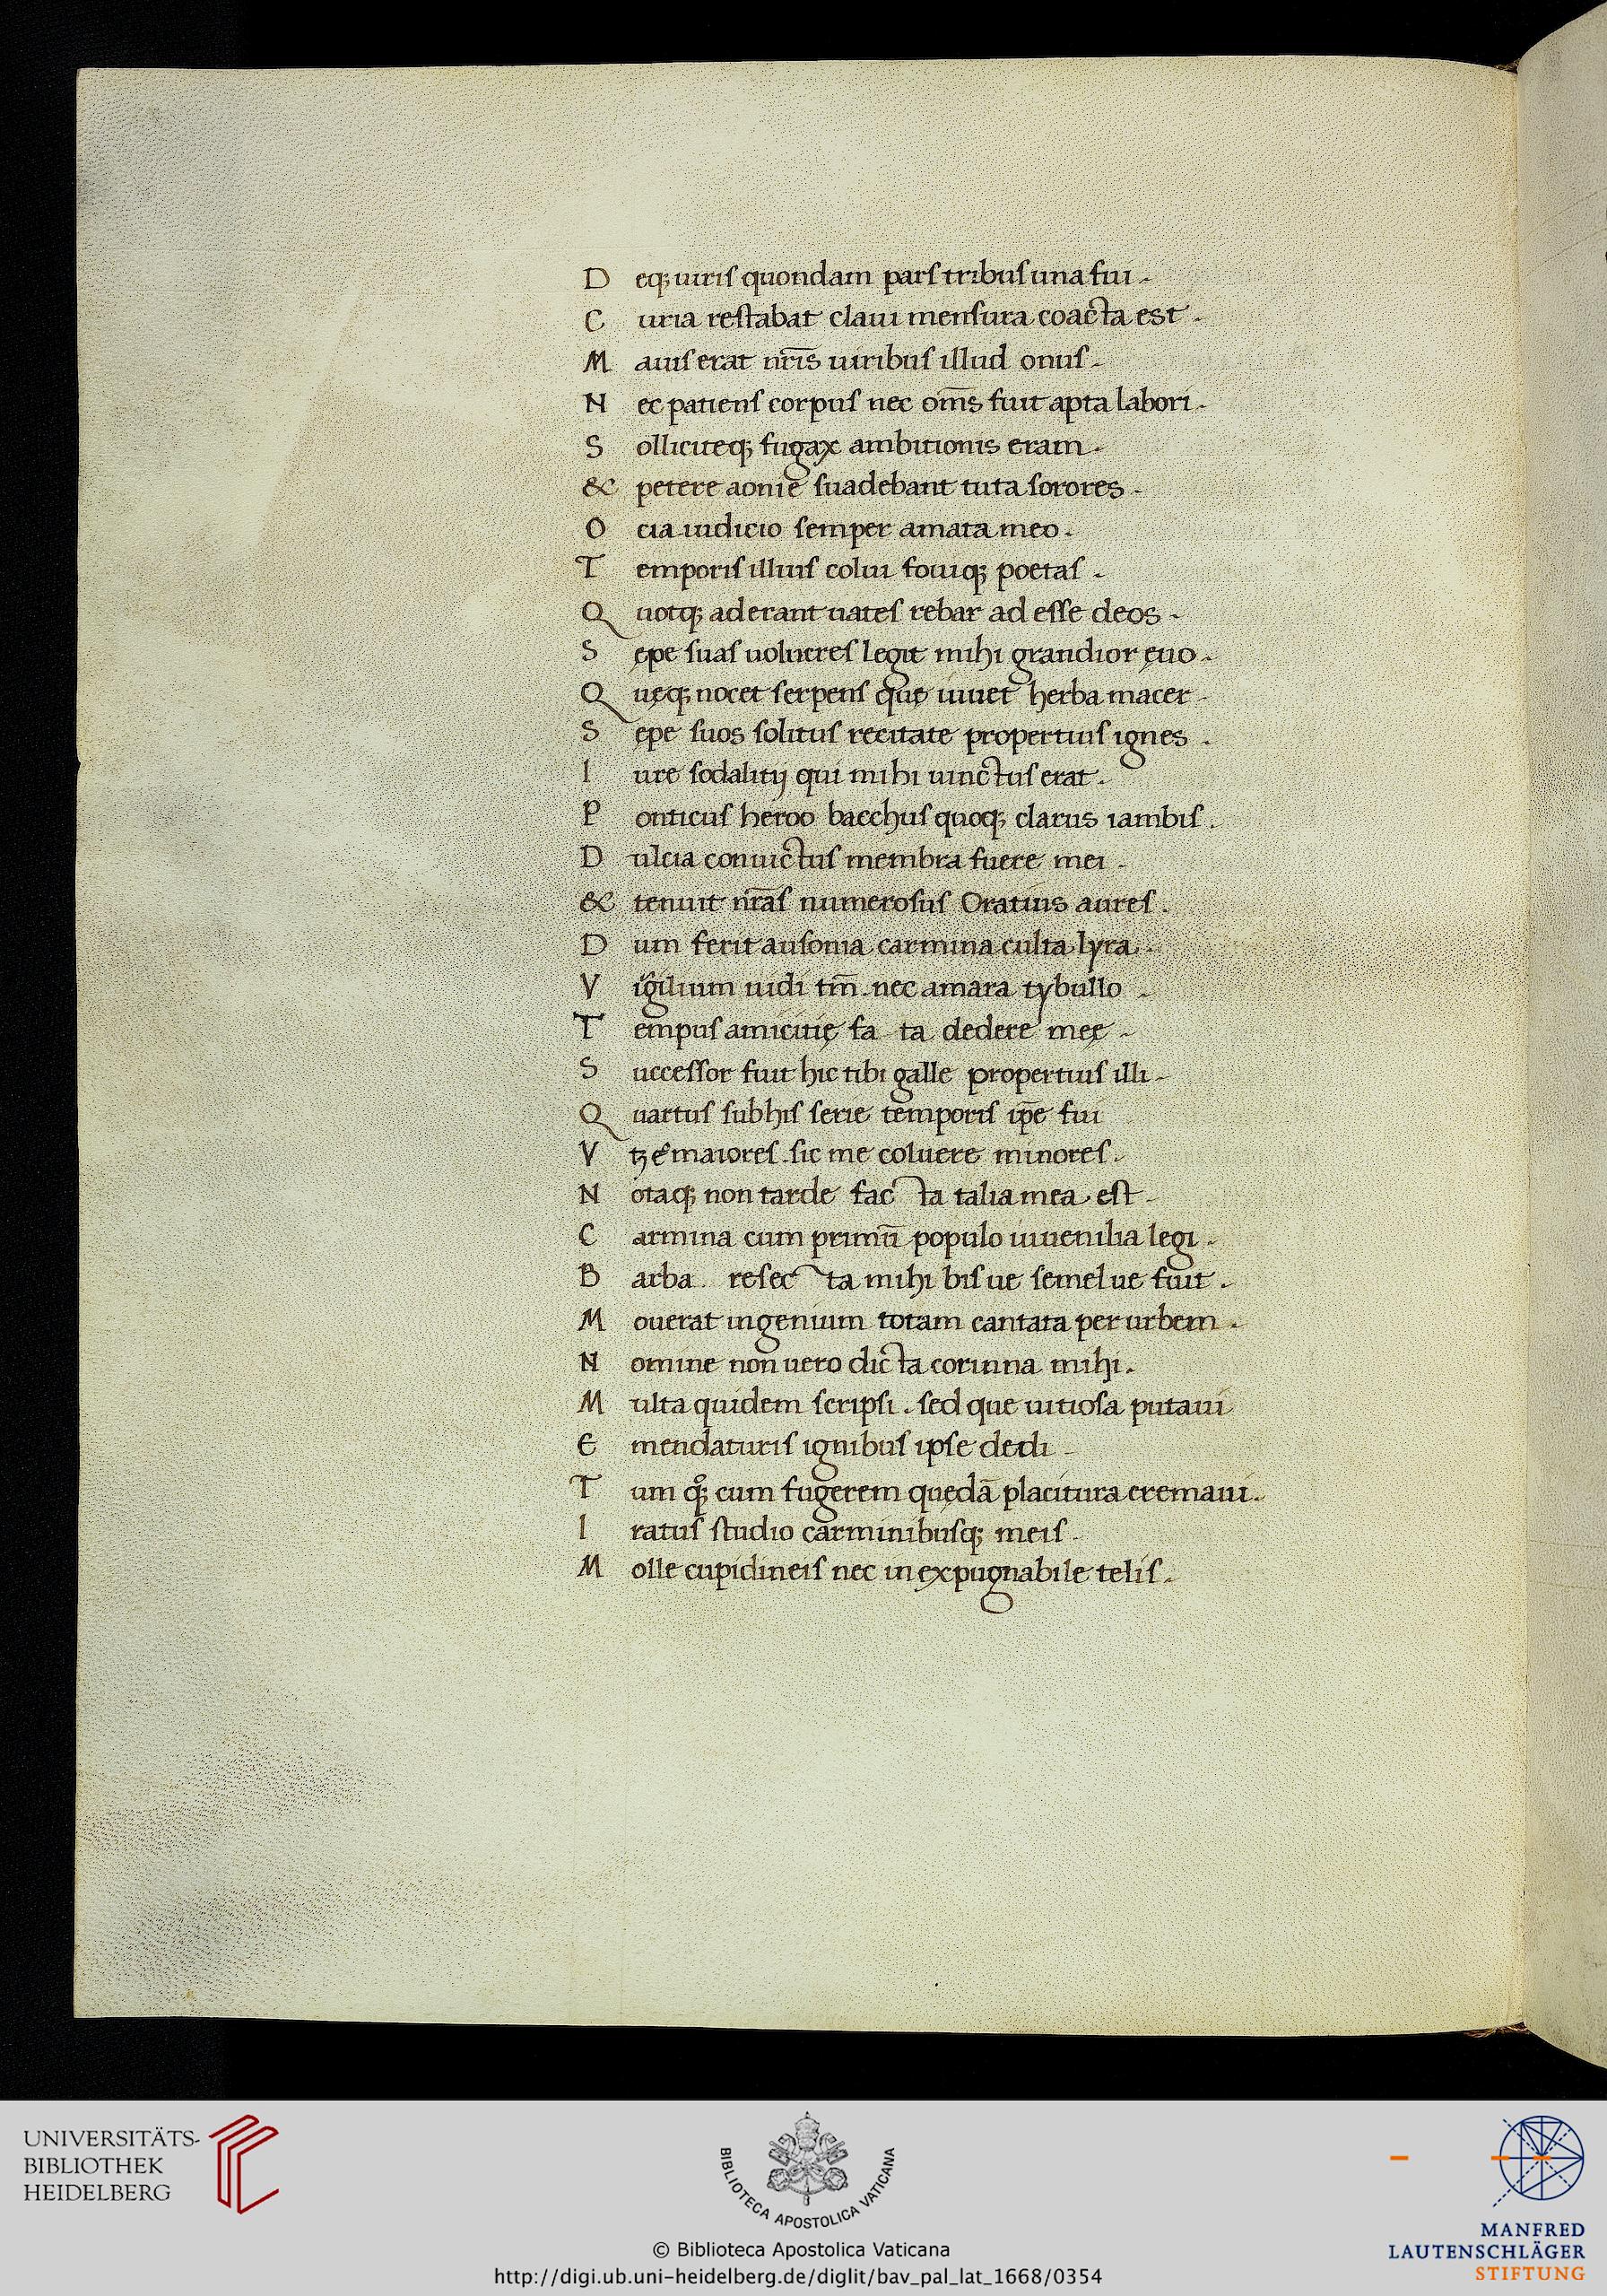 D eq; uiris quondam pars tribus una fui .
C uria restabat claui mensura coacta est .
M aius erat nr̄is uiribus illud onus .
N ec patiens corpus nec om̄s fuit apta labori .
S olliciteq; fugax ambitionis eram .
& petere aonie suadebant tuta sorores .
O cia iudicio semper amata meo .
T emporis illius colui fouiq; poetas .
Q uotq; aderant uates rebar ad esse deos .
S ępe suas uolucres legit mihi grandior ęuo .
Q uęq; nocet serpens quę iuuet herba macer .
S ępe suos solitus recitate propertius ignes .
I ure sodalitij qui mihi uinctus erat .
P onticus heroo bacchus quoq; clarus iambis .
D ulcia conuictus membra fuere mei .
& tenuit nr̄as numerosus Oratius aures .
D um ferit ausonia carmina culta lyra .
V irgilium uidi tm̄ . nec amara tybullo .
T empus amicitię fa ta dedere meę .
S uccessor fuit hic tibi galle propertius illi .
Q uartus sub his serie temporis ip̄e fui
V tꝫ eͦ maiores . sic me coluere minores .
N otaq; non tarde fac ta talia mea est .
C armina cum primū populo iuuenilia legi .
B arba resec ta mihi bis ue semel ue fuit .
M ouerat ingenium totam cantata per urbem .
N omine non uero dicta corinna mihi .
M ulta quidem scripsi . sed que uitiosa putaui
E mendaturis ignibus ipse dedi .
T um qͦ; cum fugerem quędā placitura cremaui .
I ratus studio carminibusq; meis .
M olle cupidineis nec in expugnabile telis .
UNIVERSITÄTS-
BIBLIOTHEK
HEIDELBERG
BIBLIOTECA APOSTOLICA VATICANA
© Biblioteca Apostolica Vaticana
http://digi.ub.uni-heidelberg.de/diglit/bav_pal_lat_1668/0354
MANFRED
LAUTENSCHLÄGER
STIFTUNG